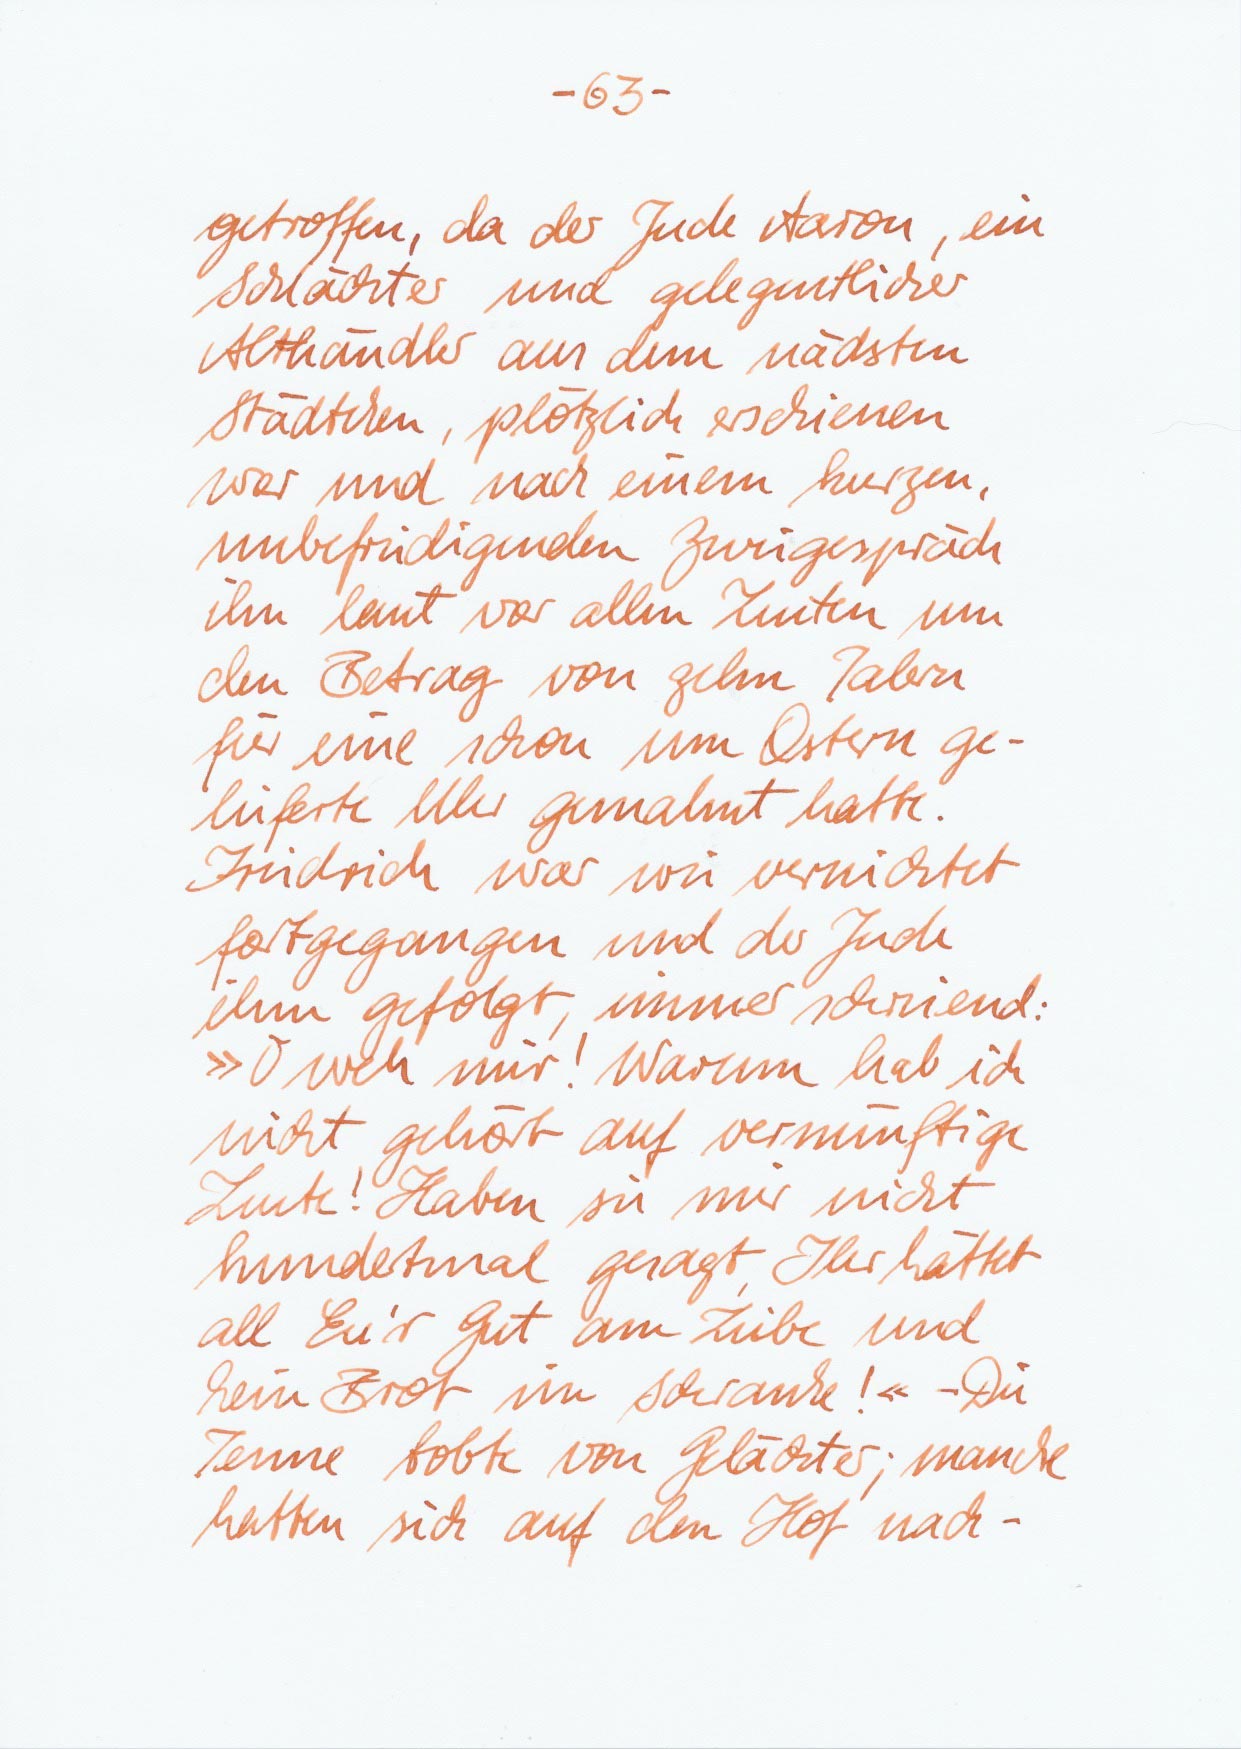 -63-
getroffen, da der Jude Aaron, ein
Schlächter und gelegentlicher
Althändler aus dem nächsten
Städtchen, plötzlich erschienen
war und nach einem kurzen,
unbefriedigenden Zwiegespräch
ihn laut vor allen Leuten um
den Betrag von zehn Talern
für eine schon um Ostern ge-
lieferte Uhr gemahnt hatte.
Friedrich war wie vernichtet
fortgegangen und der Jude
ihm gefolgt, immer schreiend:
»O weh mir! Warum hab ich
nicht gehört auf vernünftige
Leute! Haben sie mir nicht
hundertmal gesagt, Ihr hättet
all Eu'r Gut am Leibe und
kein Brot im Schranke!« -Die
Tenne tobte von Gelächter; manche
hatten sich auf den Hof nach-